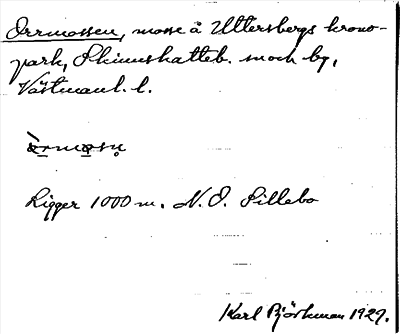 Orrmossen, mosse å Uttersbergs krono-
park, Skinnskatteb. sock by,
Västmanl. l.
òrmǫsn̥
Ligger 1000 m. N.O. Sillebo
Karl Björkman 1929.